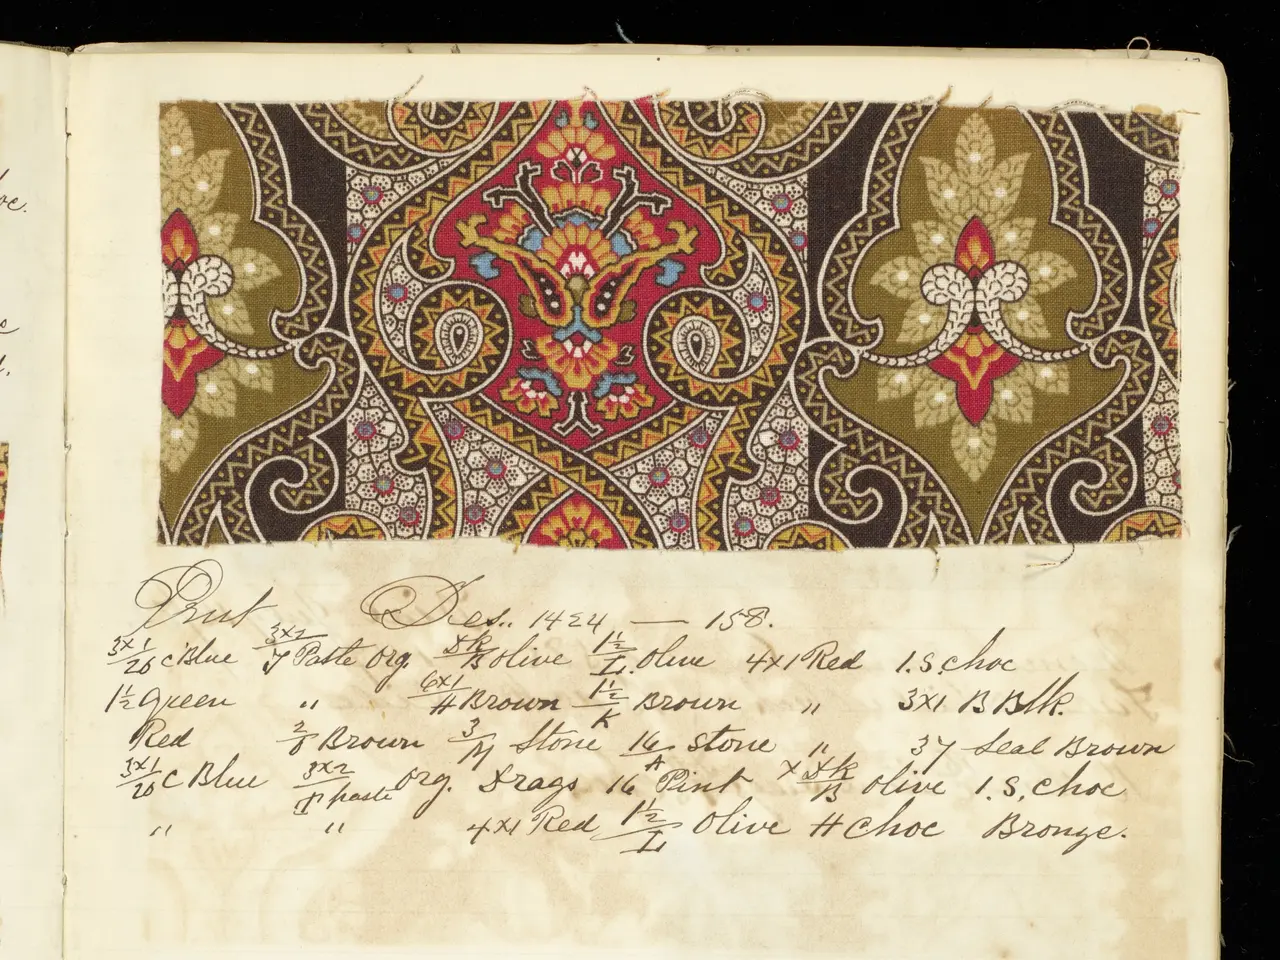 oc.
Print Des.. 1424 — 158.
3x1/20 c Blue 3x2/J Paste Org. Dk/B Olive 1½/L. Olive 4x1 Red 1.S. Choc
1½ Green " 6x1/H Brown 1½/K Brown " 3x1 B Blk.
Red 2/8 Brown 3/M Stone 16/A Stone " 37 Seal Brown
3x1/20 C Blue 3x2/J paste Org. Drags 16 Pint x Dk/B Olive 1.S. Choc
" " 4x1 Red 1½/L Olive # Choc Bronze.